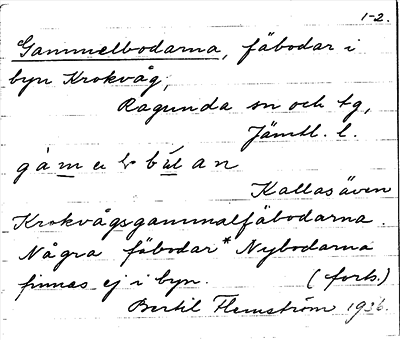 1-2.
Gammelbodarna, fäbodar i
byn Krokvåg,
Ragunda sn och tg,
Jämtl. l.
Kallas även
Krokvågsgammalfäbodarna.
Några fäbodar * Nybodarna
finnas ej i byn. (forts.)
Bertil Flemström 1936.